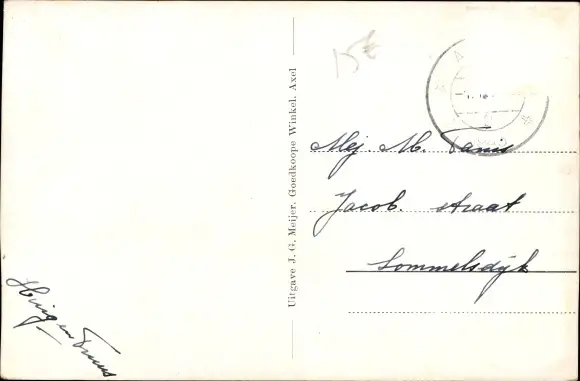 15€
Uitgave J. G. Meijer. Goedkoope Winkel. Axel
Mej. M. Tanis
Jacob. straat
Sommelsdijk
Truus